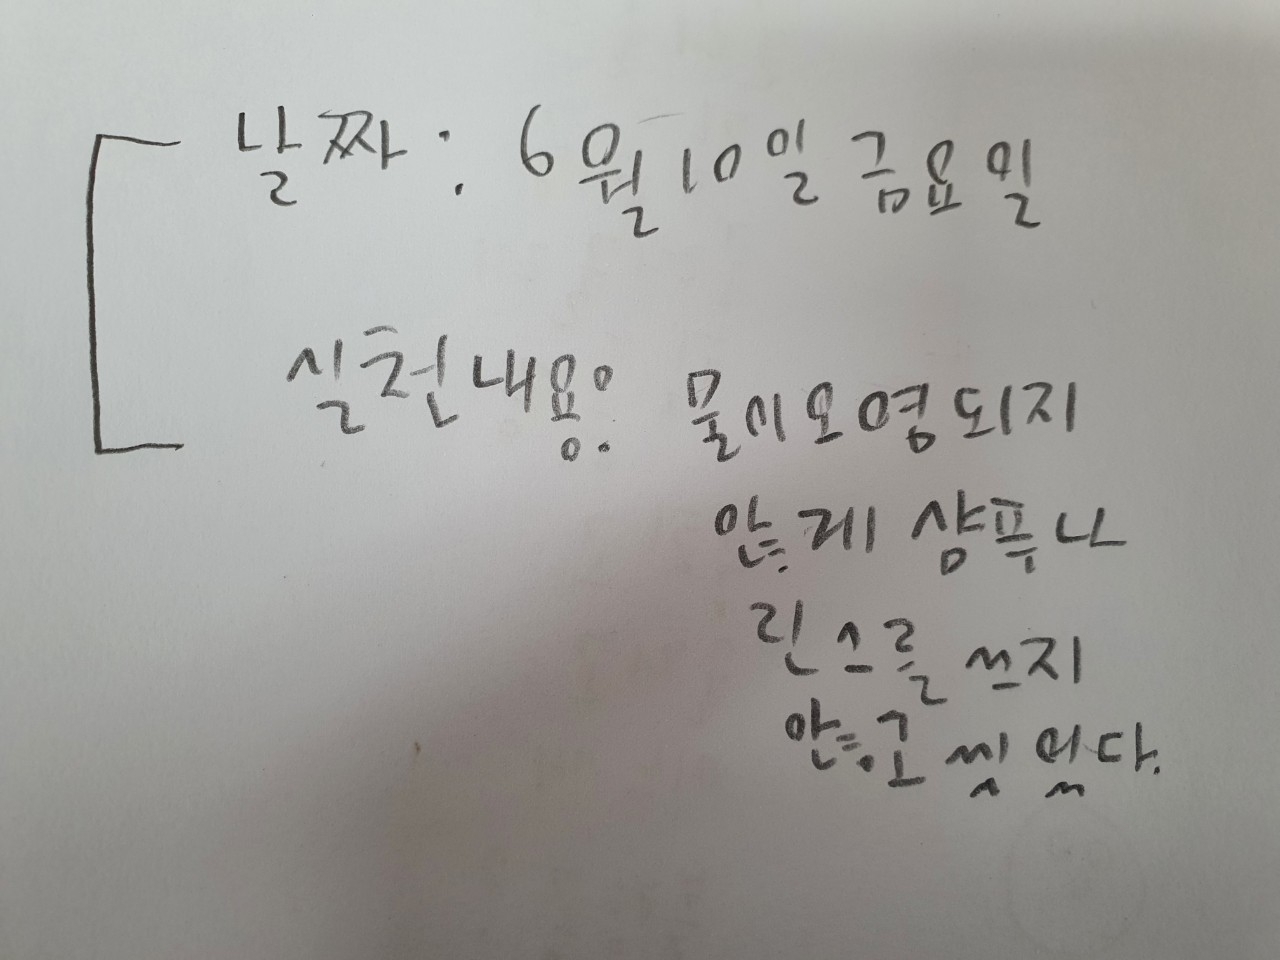 날짜: 6월10일 금요일
실천내용: 물이오염되지
않게 샴푸나
린스를 쓰지
않고 씻었다.